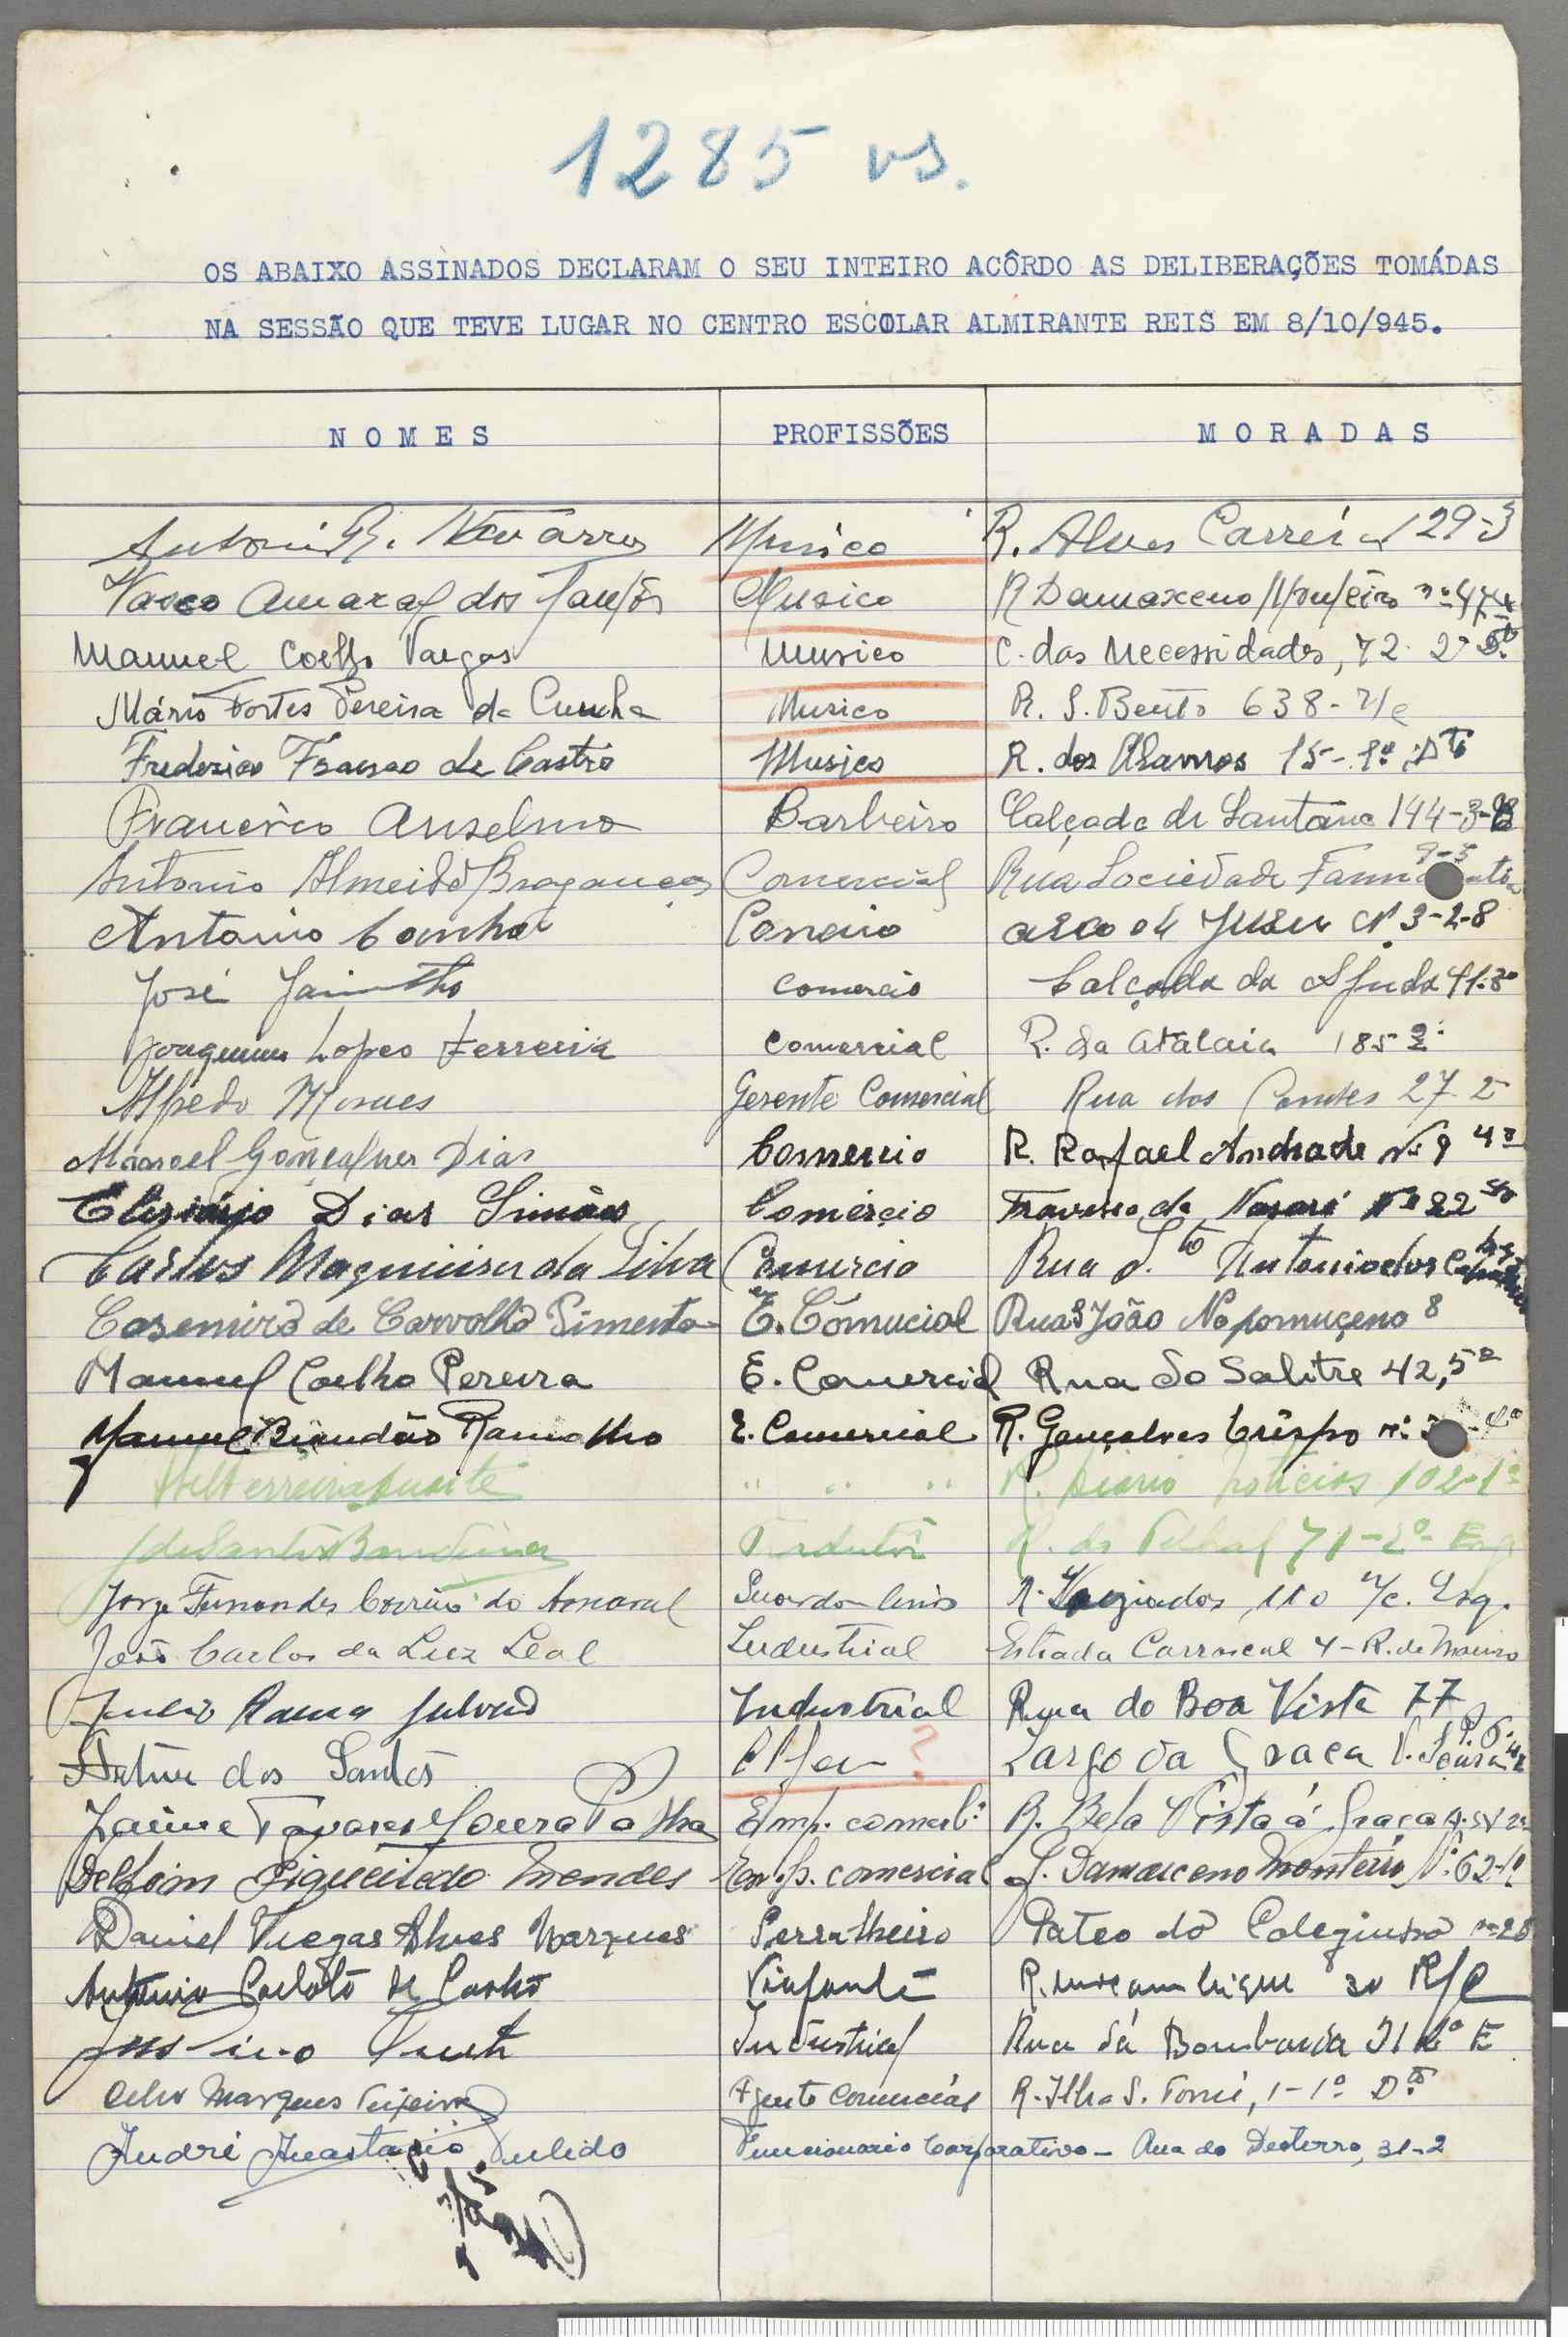 1285 vs.
OS ABAIXO ASSINADOS DECLARAM O SEU INTEIRO ACÔRDO AS DELIBERAÇÕES TOMÁDAS
NA SESSÃO QUE TEVE LUGAR NO CENTRO ESCOLAR ALMIRANTE REIS EM 8/10/945.
NOMES PROFISSÕES MORADAS
Antoni R. Navarro Musico R. Alves Correia 129-3
Vasco Amaral dos Santos Musico R Damaxeno Monteiro nº
Manuel Coelho Vargas Musico C. das Necessidades, 72. 2º
Mário Fortes Pereira da Cunha Musico R. S. Bento 638-r/c
Frederico de Castro Musico R. dos Alamos 15-1º Dto
Francisco Anselmo Barbeiro Calçada de Santana 144-3-
Antonio Almeida Bragança Comercial Rua Sociedade
Antonio Cunha Arco de Jesus Nº 3-2-8
José Jacintho comercio Calçada da Ajuda 41-3º
Joaquim Lopes Ferreira comercial R. da Atalaia 185 2º
Alfredo Gerente Comercial Rua dos Condes 27-2
Manoel Gonçalves Dias Comercio R. Rafael Andrade Nº 9 4º
Elisiário Dias Simões Comércio Travessa da Nazaré Nº 22
Carlos da Silva Comercio Rua S.to Antonio dos Capuchos
Casemiro de Carvalho Pimenta E. Comercial Rua S João Nepomuçeno 8
Manuel Coelho Pereira E. Comercial Rua do Salitre 42, 5º
Manuel Brandão Ramalho E. Comercial R. Gonçalves Crespo nº
" " " R. Diario Noticias 102-1º
Santos Bandeira R. do 71-2º Esq
Jorge Fernandes Correia do Amaral Guarda livros R. 110 r/c. Esq.
João Carlos da Luz Leal Industrial Estrada Carrascal 4-
Julio Industrial Rua da Boa Vista 77
Artur dos Santos ? Largo da Graça V. Sousa
Jaime Tavares Emp. comerl. R. Bela Vista á Graça
Delfim Figueiredo Mendes Emp. comercial R. Damasceno Monteiro Nº 62-1º
Daniel Viegas Alves Marques Serralheiro Pateo do Coleginho nº 28
Antonio de Castro Viajante R. Mocambique 30 R/C
Industrial Rua Sá Bandeira E
Celso Marques Teixeira Agente Comercial R. Ilha S. Tomé, 1-1º Dto
André Anastacio Pulido Funcionario Corporativo - Rua do Desterro, 31-2